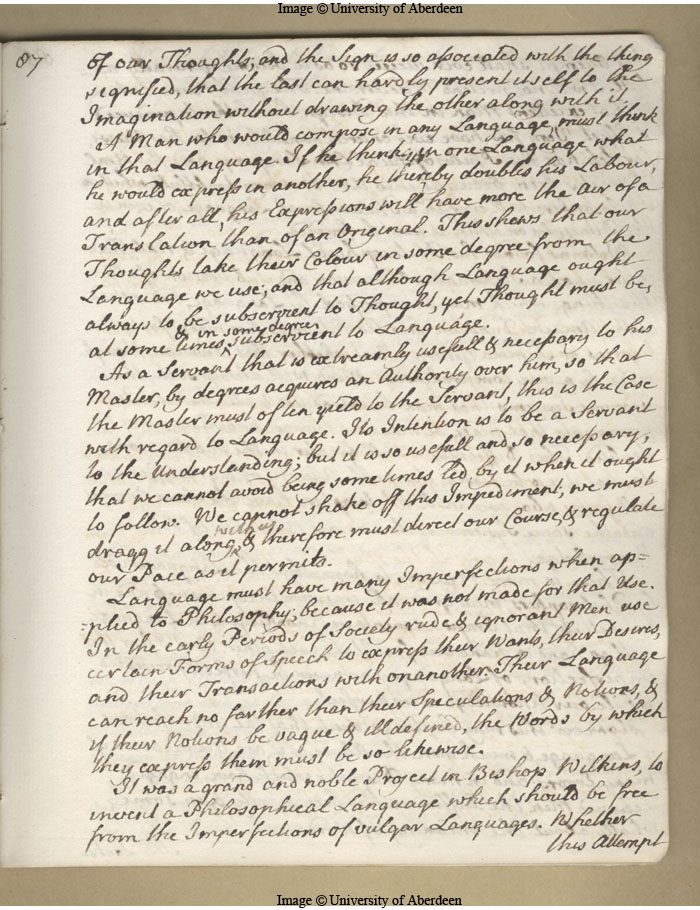 Image © University of Aberdeen
87
of our Thoughts; and the Sign is so associated with the thing
signified, that the last can hardly present itself to the
Imagination without drawing the other along with it.
A Man who would compose in any Language, must think
in that Language. If he thinks in one Language what
he would express in another, he thereby doubles his Labour,
and after all, his Expressions will have more the air of a
Translation than of an Original. This shews that our
Thoughts take their Colour in some degree from the
Language we use; and that although Language ought
always to be subservient to Thought, yet Thought must be,
& in some degree
at some times subservient to Language.
As a Servant that is extreamly usefull & necessary to his
Master, by degrees acquires an Authority over him, so that
the Master must often yield to the Servant, this is the Case
with regard to Language. Its Intention is to be a Servant
to the Understanding; but it is so usefull and so necessary,
that we cannot avoid being sometimes led by it when it ought
to follow. We cannot shake off this Impediment, we must
with us
dragg it along, & therefore must direct our Course, & regulate
our Pace as it permits.
Language must have many Imperfections when ap=
=plied to Philosophy; because it was not made for that Use.
In the early Periods of Society rude & ignorant Men use
certain Forms of Speech to express their Wants, their Desires,
and their Transactions with onanother. Their Language
can reach no farther than their Speculations & Notions, &
if their Notions be vague & ill defined, the Words by which
they express them must be so likewise.
It was a grand and noble Project in Bishop Wilkins, to
invent a Philosophical Language which should be free
from the Imperfections of vulgar Languages. Whether
this Attempt
Image © University of Aberdeen